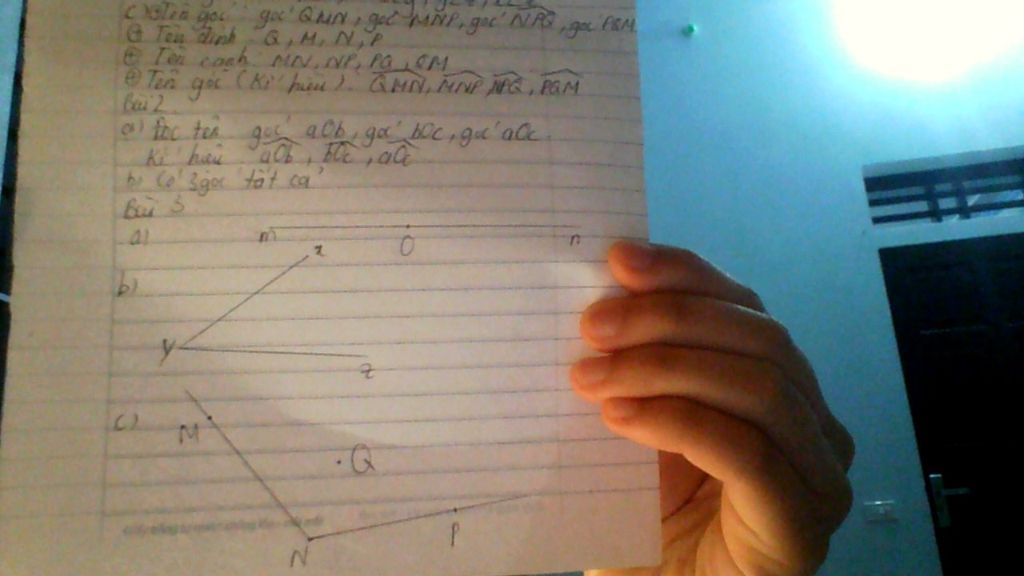 c) ⊕ Tên góc: góc QMN, góc MNP, góc NPQ, góc PQM
⊕ Tên đỉnh: Q, M, N, P
⊕ Tên cạnh: MN, NP, PQ, QM
⊕ Tên góc (Kí hiệu): QMN, MNP, NPQ, PQM
Bài 2
a) Đọc tên góc aOb, góc bOc, góc aOc
Kí hiệu aOb, bOc, aOc
b) Có 3 góc tất cả
Bài 3
a) m O n
b) x
y
z
c) M
Q
P
N